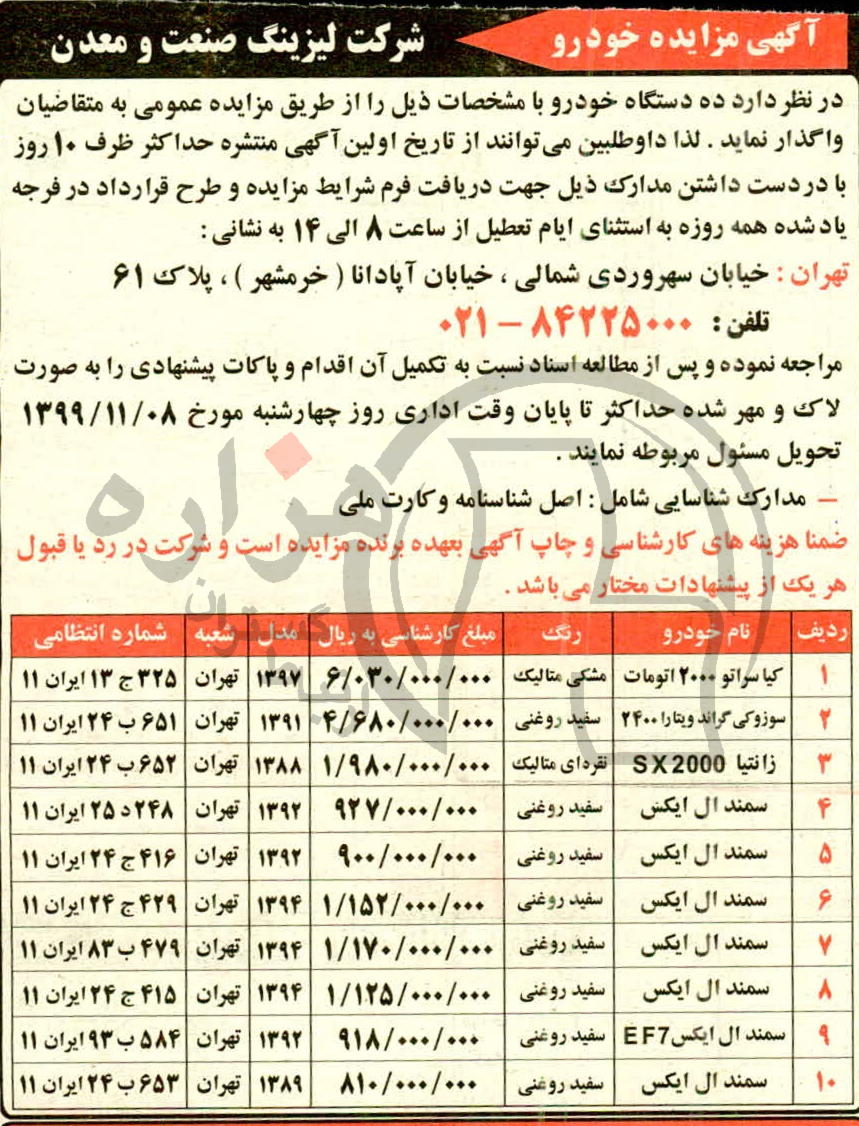 آگهی مزایده خودرو شرکت لیزینگ صنعت و معدن
در نظر دارد ده دستگاه خودرو با مشخصات ذیل را از طریق مزایده عمومی به متقاضیان
واگذار نماید . لذا داوطلبین می‌توانند از تاریخ اولین آگهی منتشره حداکثر ظرف ۱۰ روز
با در دست داشتن مدارک ذیل جهت دریافت فرم شرایط مزایده و طرح قرارداد در فرجه
یاد شده همه روزه به استثنای ایام تعطیل از ساعت ۸ الی ۱۴ به نشانی :
تهران : خیابان سهروردی شمالی ، خیابان آپادانا ( خرمشهر ) ، پلاک ۶۱
تلفن : ۸۴۲۲۵۰۰۰ – ۰۲۱
مراجعه نموده و پس از مطالعه اسناد نسبت به تکمیل آن اقدام و پاکات پیشنهادی را به صورت
لاک و مهر شده حداکثر تا پایان وقت اداری روز چهارشنبه مورخ ۱۳۹۹/۱۱/۰۸
تحویل مسئول مربوطه نمایند .
– مدارک شناسایی شامل : اصل شناسنامه و کارت ملی
ضمنا هزینه های کارشناسی و چاپ آگهی بعهده برنده مزایده است و شرکت در رد یا قبول
هر یک از پیشنهادات مختار می باشد .
ردیف نام خودرو رنگ مبلغ کارشناسی به ریال مدل شعبه شماره انتظامی
۱ کیا سراتو ۲۰۰۰ اتومات مشکی متالیک ۶/۰۳۰/۰۰۰/۰۰۰ ۱۳۹۷ تهران ۳۲۵ ج ۱۳ ایران ۱۱
۲ سوزوکی گراند ویتارا ۲۴۰۰ سفید روغنی ۴/۶۸۰/۰۰۰/۰۰۰ ۱۳۹۱ تهران ۶۵۱ ب ۲۴ ایران ۱۱
۳ زانتیا SX2000 نقره‌ای متالیک ۱/۹۸۰/۰۰۰/۰۰۰ ۱۳۸۸ تهران ۶۵۲ ب ۲۴ ایران ۱۱
۴ سمند ال ایکس سفید روغنی ۹۲۷/۰۰۰/۰۰۰ ۱۳۹۲ تهران ۲۴۸ د ۲۵ ایران ۱۱
۵ سمند ال ایکس سفید روغنی ۹۰۰/۰۰۰/۰۰۰ ۱۳۹۲ تهران ۴۱۶ ج ۲۴ ایران ۱۱
۶ سمند ال ایکس سفید روغنی ۱/۱۵۲/۰۰۰/۰۰۰ ۱۳۹۴ تهران ۴۲۹ ج ۲۴ ایران ۱۱
۷ سمند ال ایکس سفید روغنی ۱/۱۷۰/۰۰۰/۰۰۰ ۱۳۹۴ تهران ۴۷۹ ب ۸۳ ایران ۱۱
۸ سمند ال ایکس سفید روغنی ۱/۱۲۵/۰۰۰/۰۰۰ ۱۳۹۴ تهران ۴۱۵ ج ۲۴ ایران ۱۱
۹ سمند ال ایکس EF7 سفید روغنی ۹۱۸/۰۰۰/۰۰۰ ۱۳۹۲ تهران ۵۸۴ ب ۹۳ ایران ۱۱
۱۰ سمند ال ایکس سفید روغنی ۸۱۰/۰۰۰/۰۰۰ ۱۳۸۹ تهران ۶۵۳ ب ۲۴ ایران ۱۱
هزاره